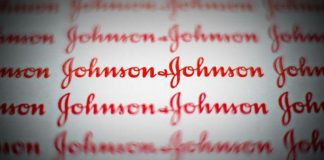 Johnson & Johnson
nson Johnson & Johnson John
nson Johnson & Johnson John
nson Johnson & Johnson John
Johnson & Johnson